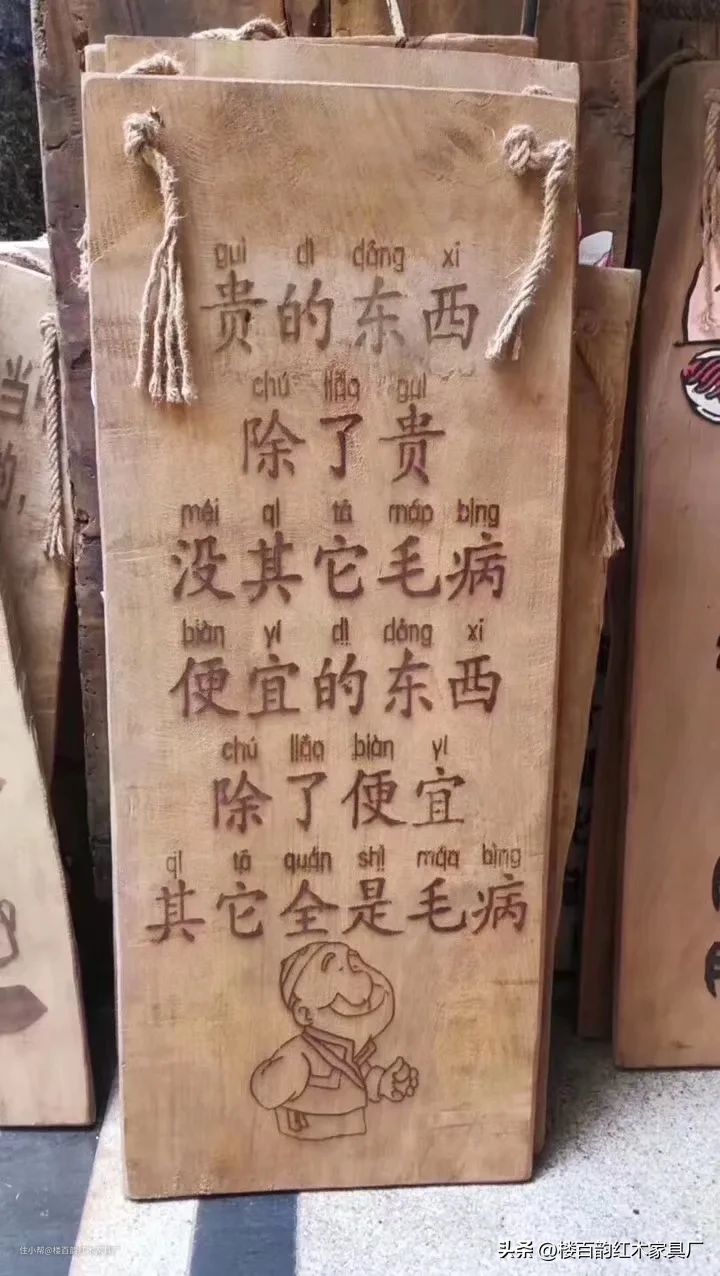 guì dì dōng xi
贵的东西
chú liǎo guì
除了贵
méi qí tā máo bìng
没其它毛病
biàn yí dì dōng xi
便宜的东西
chú liǎo biàn yí
除了便宜
qí tā quán shì máo bìng
其它全是毛病
当
的，
住小帮@楼百韵红木家具厂
头条 @楼百韵红木家具厂